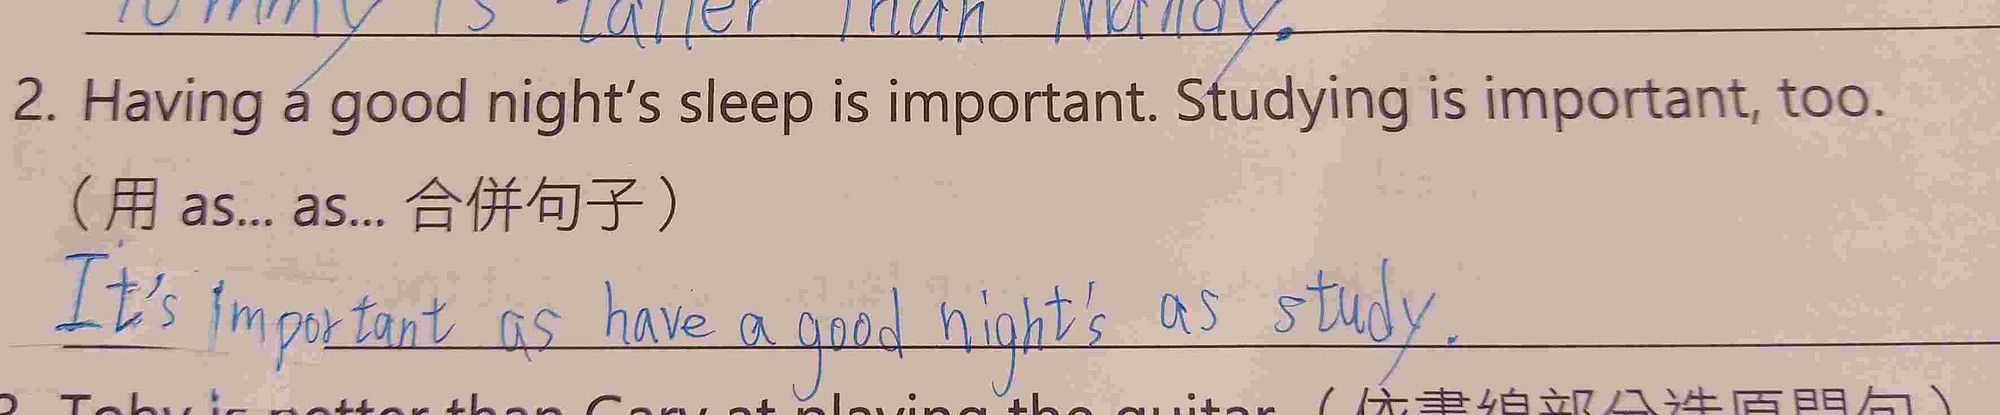 Tommy is taller than Nandy.
2. Having a good night's sleep is important. Studying is important, too.
（用 as... as... 合併句子）
It's important as have a good night's as study.
Toby is better than Gary at playing the guitar.（依畫線部分造原問句）